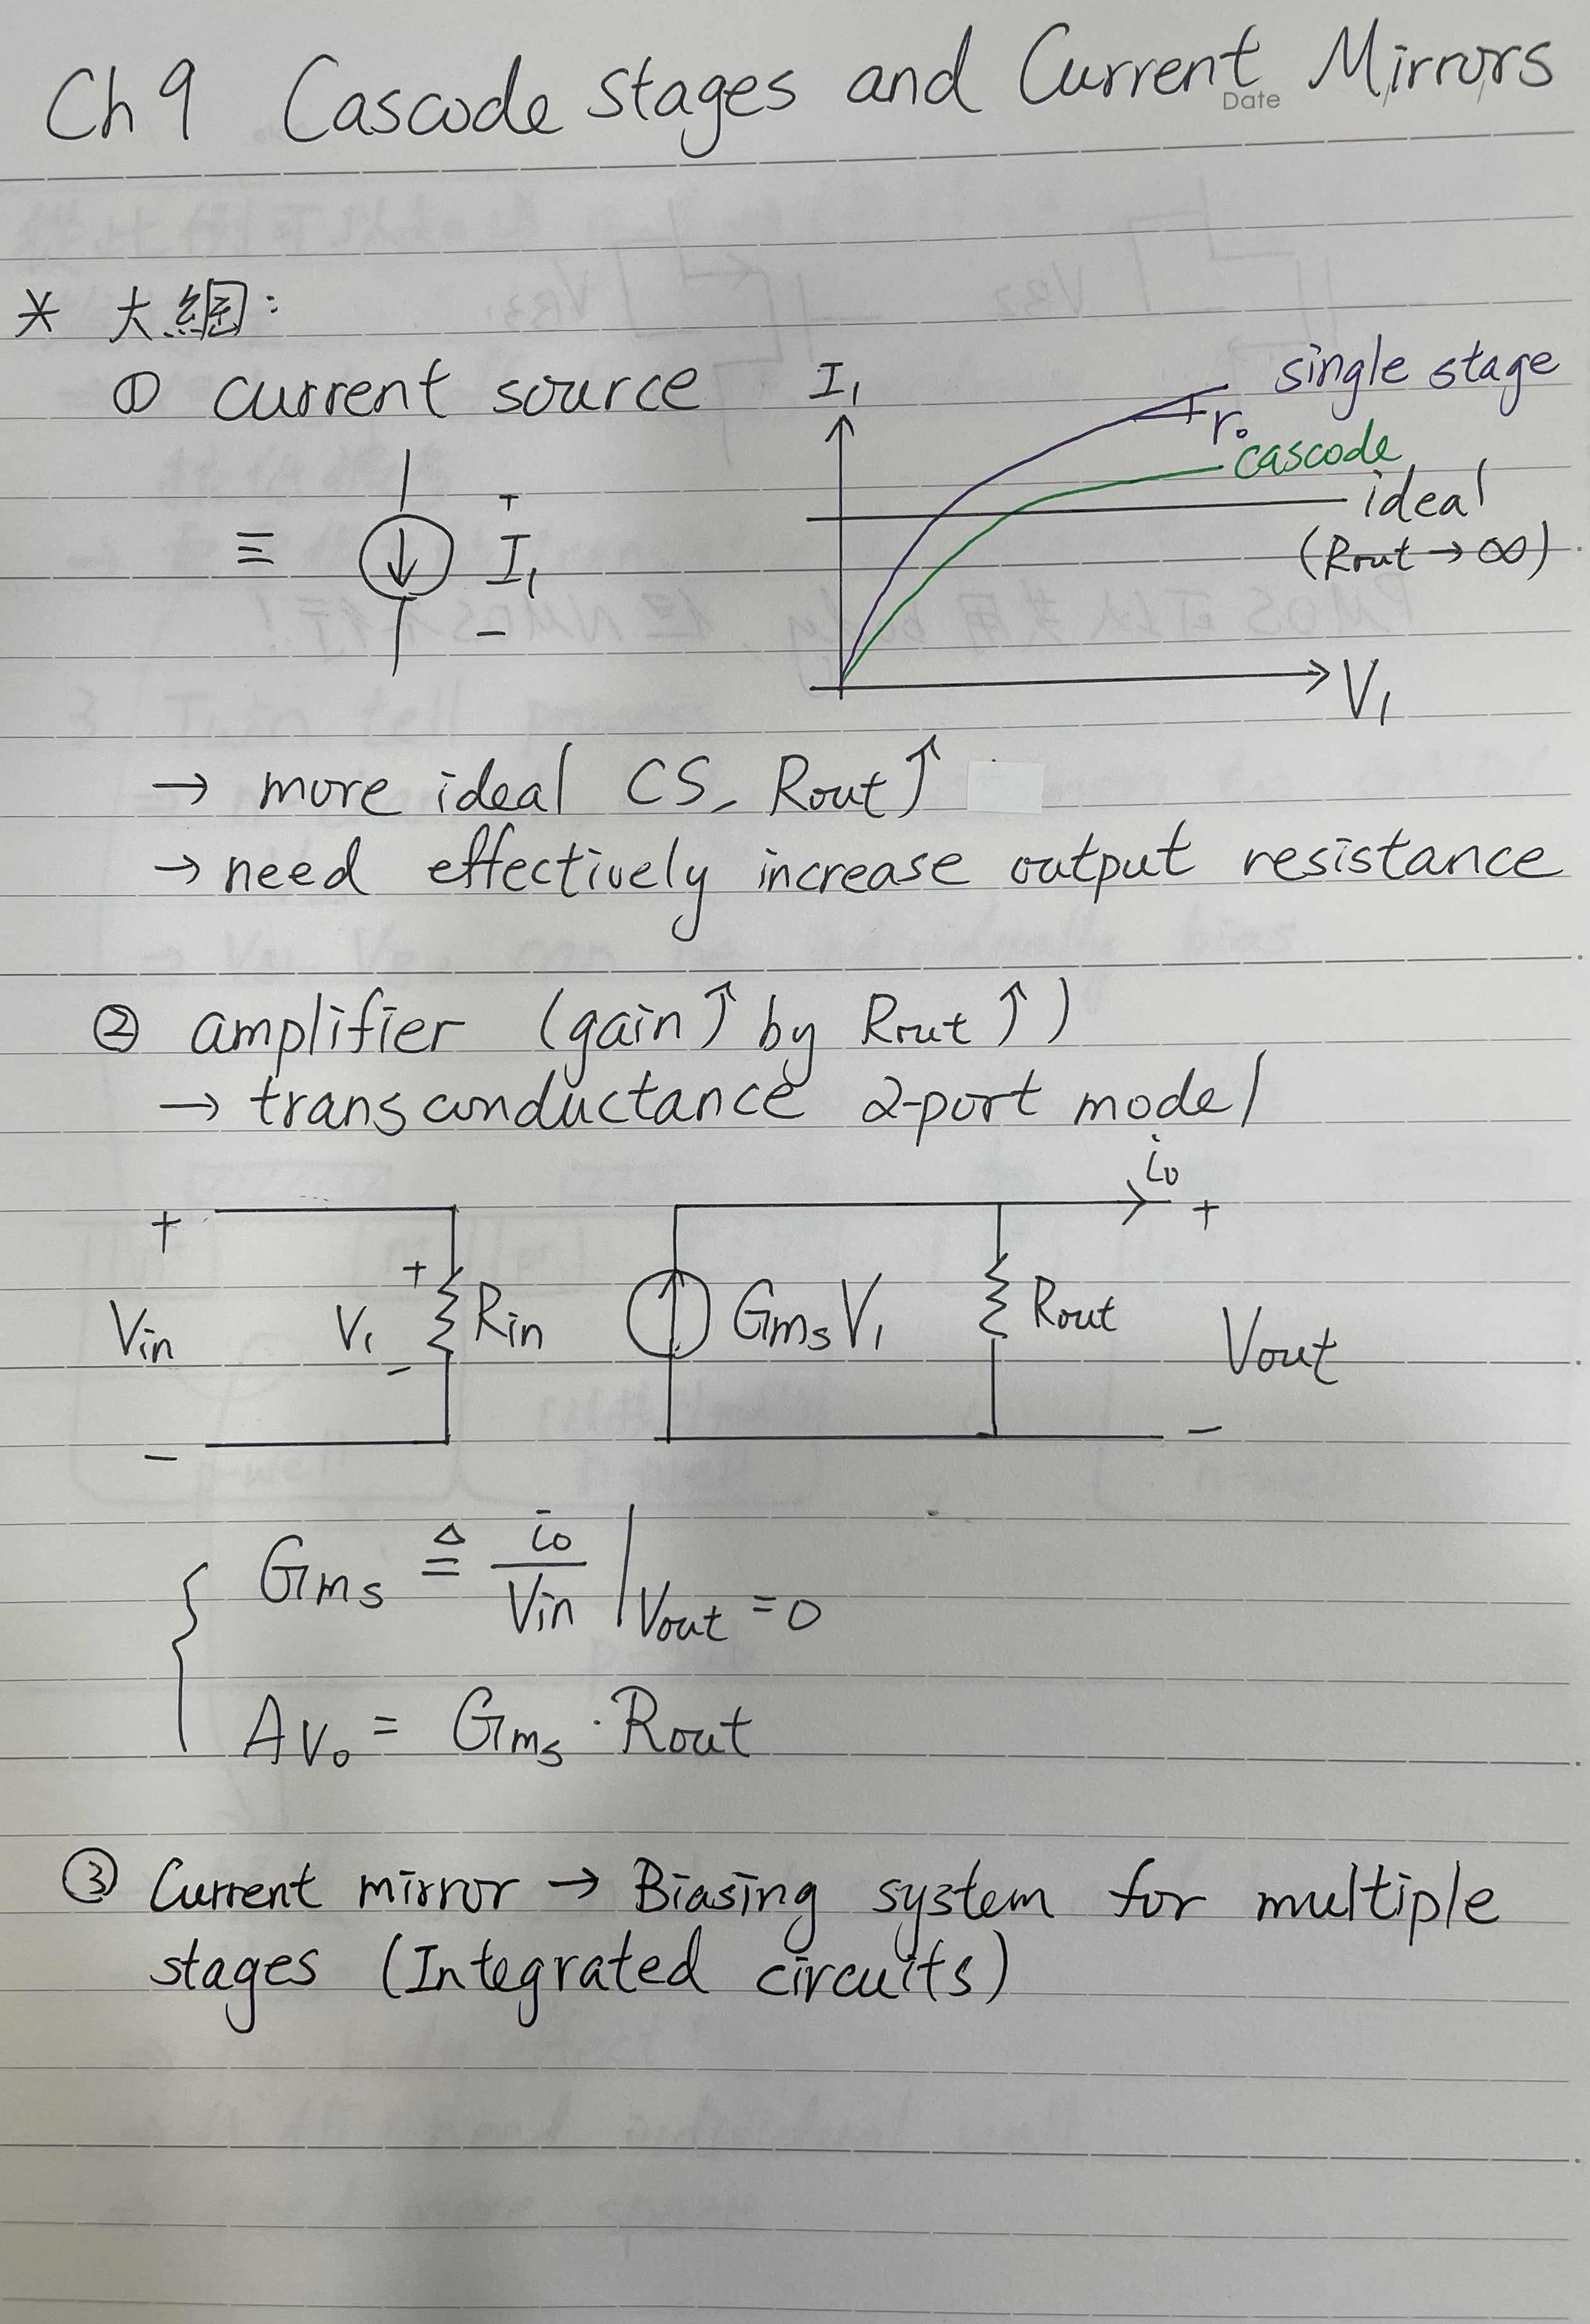 Ch 9 Cascode stages and Current Mirrors
Date
* 大綱:
① current source
I₁
single stage
r₀
cascode
ideal
(Rout → ∞)
≡
+
I₁
−
V₁
→ more ideal CS, Rout ↑
→ need effectively increase output resistance
② amplifier (gain ↑ by Rout ↑)
→ transconductance 2-port model
i₀
+ + +
Vin V₁ Rin Gms V₁ Rout Vout
− − −
Gms ≜ i₀/Vin |Vout = 0
Av₀ = Gms · Rout
③ Current mirror → Biasing system for multiple
stages (Integrated circuits)